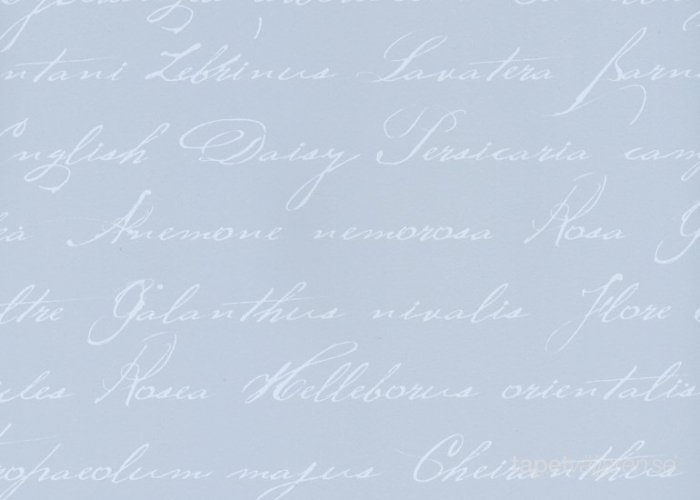 ntani Zebrinus Lavatera Barn
English Daisy Persicaria cam
ea Anemone nemorosa Rosa G
ltre Galanthus nivalis Flore
ules Rosea Helleborus orientalis
ropaeolum majus Cheiranthus